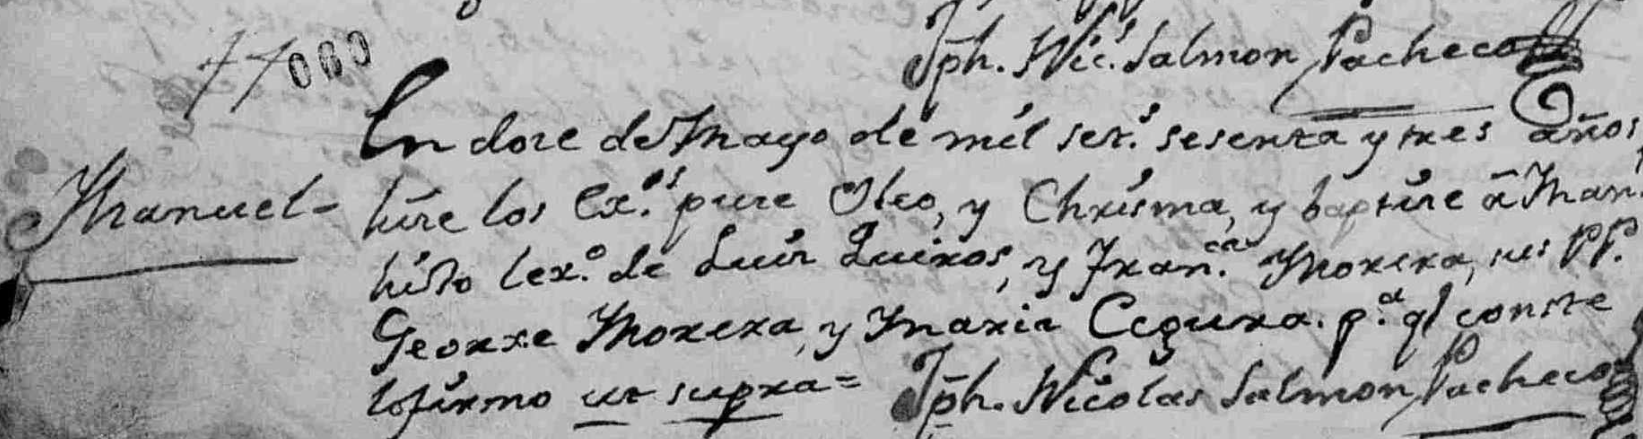 Jph. Nic.s Salmon Pacheco
77 000
En doce de Mayo de mil set.s sesenta y tres años,
Manuel - hice los Ex.os puse Oleo, y Chrisma, y baptise â Man.
hijo lex.o de Luis Quiros, y Fran.ca Morera, sus PP.
Georxe Morera, y Maria Cegura. p.a q̃ conste
lofirmo ut supra = Jph. Nicolas Salmon Pacheco